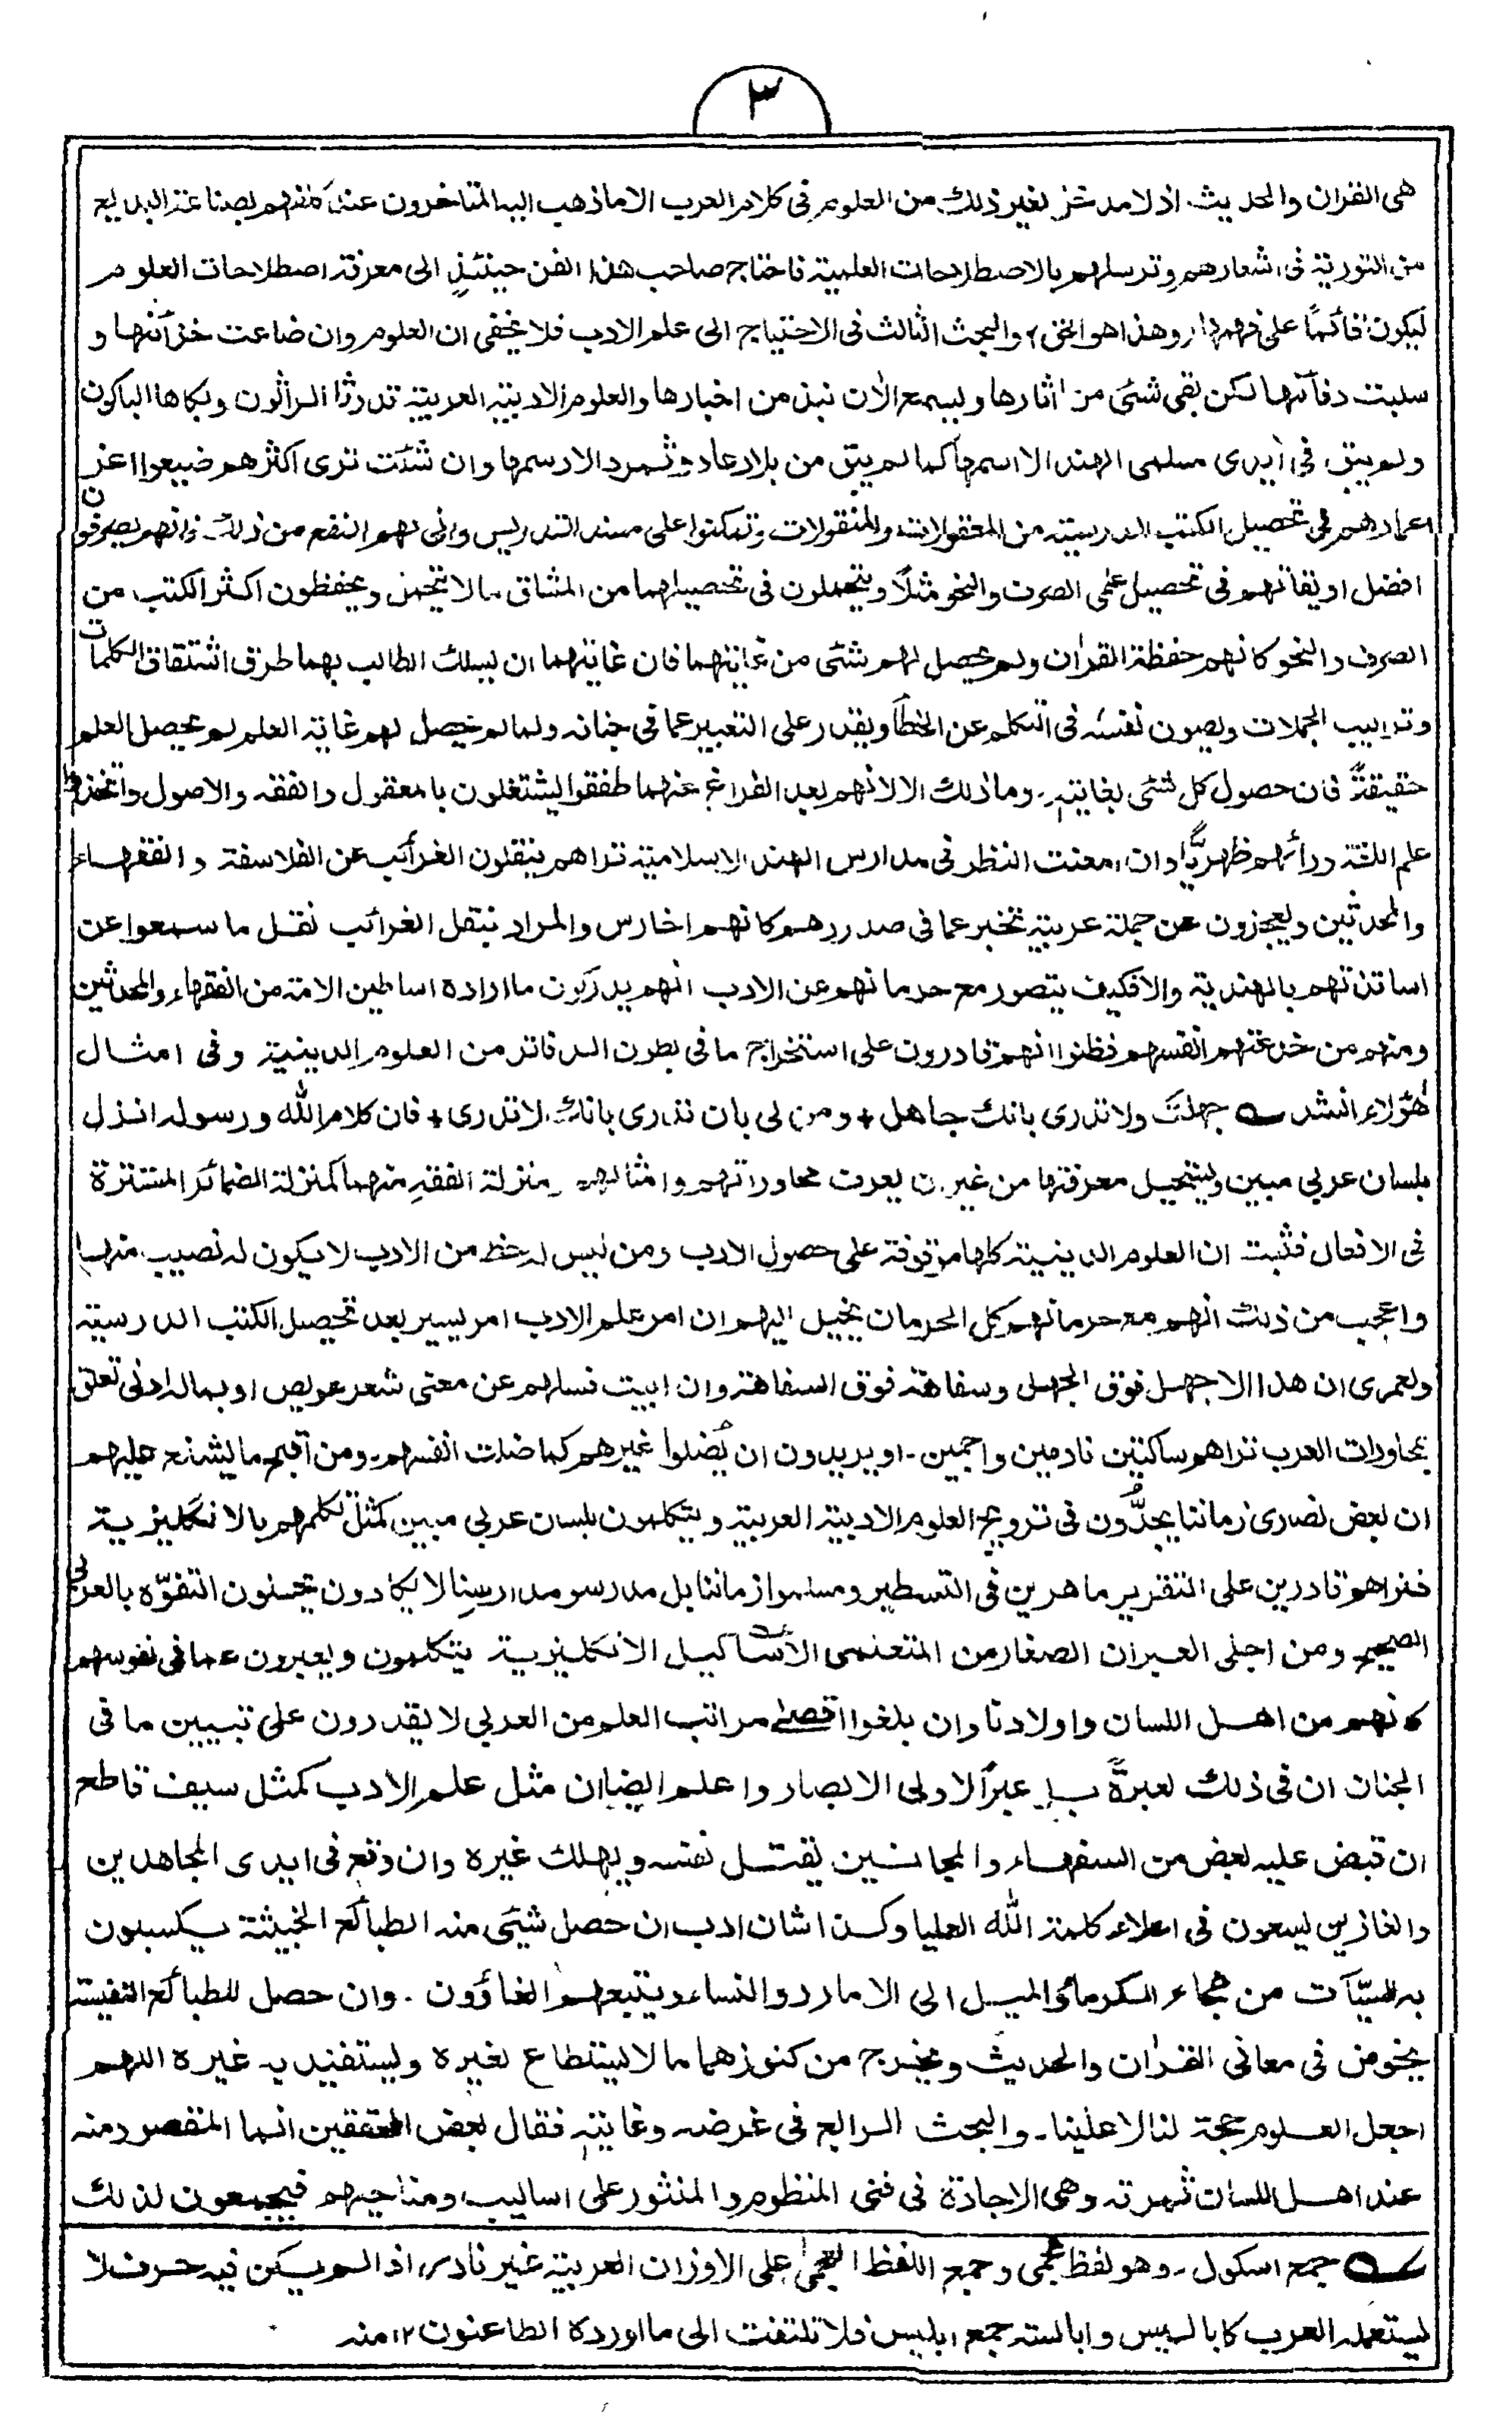 ٣
هى القران والحديث اذ لا مدخل لغير ذلك من العلوم فى كلام العرب الا ما ذهب اليه المتاخرون عند كلفهم بصناعة البديع
من التورية فى اشعارهم وترسلهم بالاصطلاحات العلمية فاحتاج صاحب هذا الفن حينئذٍ الى معرفة اصطلاحات العلوم
ليكون قائمًا على فهمها وهذا هو الحق، والبحث الثالث فى الاحتياج الى علم الادب فلا يخفى ان العلوم وان ضاعت خزآئنها و
سلبت دفآئنها لكن بقى شئ من اٰثارها ويسمع الاٰن نبذ من اخبارها والعلوم الادبية العربية قد رثا الراثون وبكاها الباكون
ولم يبق فى ايدى مسلمى الهند الا اسمها كما لم يبق من بلاد عاد وثمود الا رسمها وان شئت ترى اكثرهم ضيعوا اعز
اعمارهم فى تحصيل الكتب الدرسية من المعقولات والمنقولات وتمكنوا على مسند التدريس وانى لهم النفع من ذلك فانهم يصرفون
افضل اوقاتهم فى تحصيل علمى الصرف والنحو مثلًا ويتحملون فى تحصيلهما من المشاق ما لا يتحمل ويحفظون اكثر الكتب من
الصرف والنحو كانهم حفظة القراٰن ولم يحصل لهم شئ من غايتهما فان غايتهما ان يسلك الطالب بهما طرق اشتقاق الكلمات
وتراكيب الجملات ويصون نفسه فى التكلم عن الخطأ ويقدر على التعبير عما فى جنانه ولما لم يحصل لهم غاية العلم لم يحصل العلم
حقيقةً فان حصول كل شئ بغايته ۔ وما ذلك الا لانهم بعد الفراغ عنهما طفقوا يشتغلون بالمعقول والفقه والاصول واتخذوا
علم اللغة ورآئهم ظهريًّا وان امعنت النظر فى مدارس الهند الاسلامية تراهم ينقلون الغرآئب عن الفلاسفة والفقهاء
والمحدثين ويعجزون عن جملة عربية تخبر عما فى صدورهم كانهم اخارس والمراد بنقل الغرائب نقل ما سمعوا عن
اساتذتهم بالهندية والا فكيف يتصور مع حرمانهم عن الادب انهم يدركون ما اراده اساطين الامة من الفقهاء والمحدثين
ومنهم من خدعتهم انفسهم فظنوا انهم قادرون على استخراج ما فى بطون الدفاتر من العلوم الدينية وفى امثال
هٰؤلاء انشد جهلتَ ولا تدرى بانك جاهل + ومن لى بان تدرى بانك لا تدرى + فان كلام الله ورسوله انزل
بلسان عربى مبين ويستحيل معرفتها من غير ان يعرف محاوراتهم وامثالهم ومنزلة الفقه منهما كمنزلة الضمائر المستترة
فى الافعال فثبت ان العلوم الدينية كلها موقوفة على حصول الادب ومن ليس له حظ من الادب لا يكون له نصيب منها
واعجب من ذلك انهم مع حرمانهم كل الحرمان يخيل اليهم ان امر علم الادب امر يسير بعد تحصيل الكتب الدرسية
ولعمرى ان هذا الا جهل فوق الجهل وسفاهة فوق السفاهة وان ابيت فسلهم عن معنى شعر عويص او بما له ادنى تعلق
بمحاورات العرب تراهم ساكتين نادمين واجمين ۔ او يريدون ان يُضلوا غيرهم كما ضلت انفسهم ۔ ومن اقبح ما يشنع عليهم
ان بعض نصارى زماننا يجدُّون فى ترويج العلوم الادبية العربية ويتكلمون بلسان عربى مبين كمثل تكلمهم بالانكليزية
فتراهم قادرين على التقرير ماهرين فى التسطير ومسلموا زماننا بل مدرسو مدارسنا لا يكادون يحسنون التفوّه بالعربى
الصحيح ومن اجلى العبر ان الصغار من المتعلمى الاساكيل الانكليزية يتكلمون ويعبرون عما فى نفوسهم
كانهم من اهل اللسان واولادنا وان بلغوا اقصٰى مراتب العلم من العربى لا يقدرون على تبيين ما فى
الجنان ان فى ذلك لعبرةً بل عبرًا لاولى الابصار واعلم ايضا ان مثل علم الادب كمثل سيف قاطع
ان قبض عليه بعض من السفهاء والمجانين يقتل نفسه ويهلك غيره وان وقع فى ايدى المجاهدين
والغازين يسعون فى اعلاء كلمة الله العليا وكذا شان ادب ان حصل شئ منه الطبائع الخبيثة يكسبون
به السيّآت من هجاء الكرماء والميل الى الامارد والنساء ويتبعهم الغاؤون ۔ وان حصل للطبائع النفيسة
يخوض فى معانى القراٰن والحديث ويخرج من كنوزهما ما لا يستطاع لغيره ويستفيد به غيره اللهم
اجعل العلوم حجة لنا لا علينا ۔ والبحث الرابع فى غرضه وغايته فقال بعض المحققين انما المقصود منه
عند اهل اللسان ثمرته وهى الاجادة فى فنى المنظوم والمنثور على اساليب ومناحيهم فيجمعون لذلك
جمع اسكول ۔ وهو لفظ عجمى وجمع اللفظ العجمى على الاوزان العربية غير نادر، اذ لم يكن فيه حرف لا
يستعمله العرب كاباليس وابالسة جمع ابليس فلا تلتفت الى ما اورده الطاعنون ١٢ منه